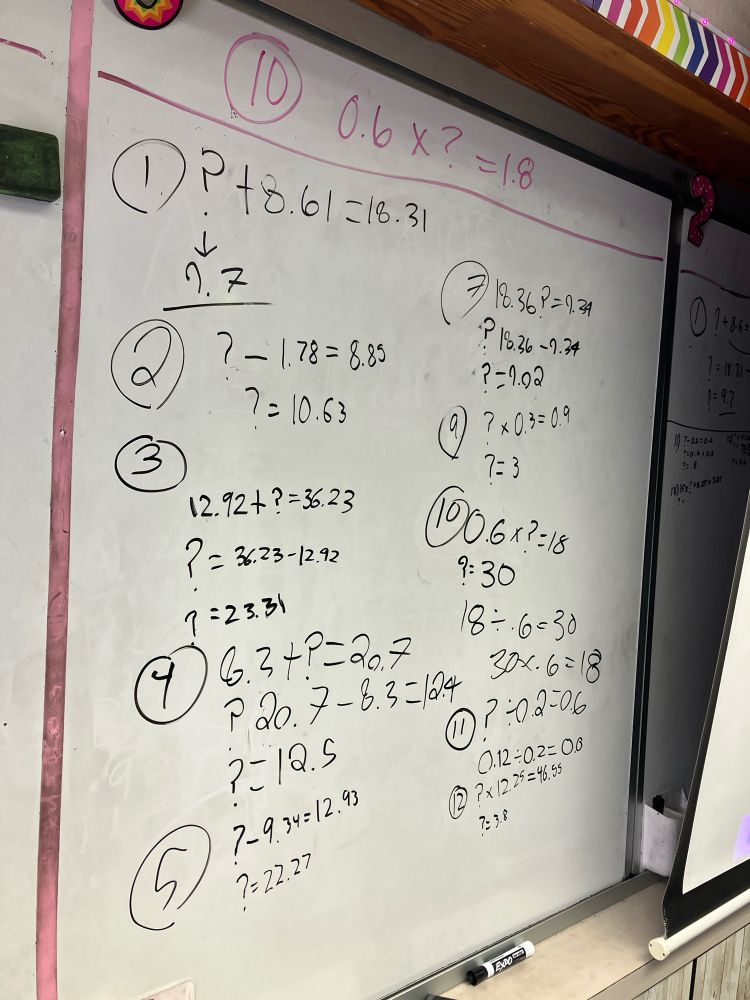 10 0.6 x ? = 1.8
1. ? + 8.61 = 18.31
9.7
2 ? - 1.78 = 8.85
? = 10.63
3
12.92 + ? = 36.23
? = 36.23 - 12.92
? = 23.31
4 8.3 + ? = 20.7
? 20.7 - 8.3 = 12.4
? = 12.5
5 ? - 9.34 = 12.93
? = 22.27
7 18.36 ? = 9.34
? 18.36 - 9.34
? = 9.02
9 ? x 0.3 = 0.9
? = 3
10 0.6 x ? = 18
? = 30
18 ÷ .6 = 30
30 x .6 = 18
11 ? ÷ 0.2 = 0.6
0.12 ÷ 0.2 = 0.6
12 ? x 12.25 = 46.55
? = 3.8
EXPO
?
1 ? + 8.6
? = 18.31 -
? = 9.7